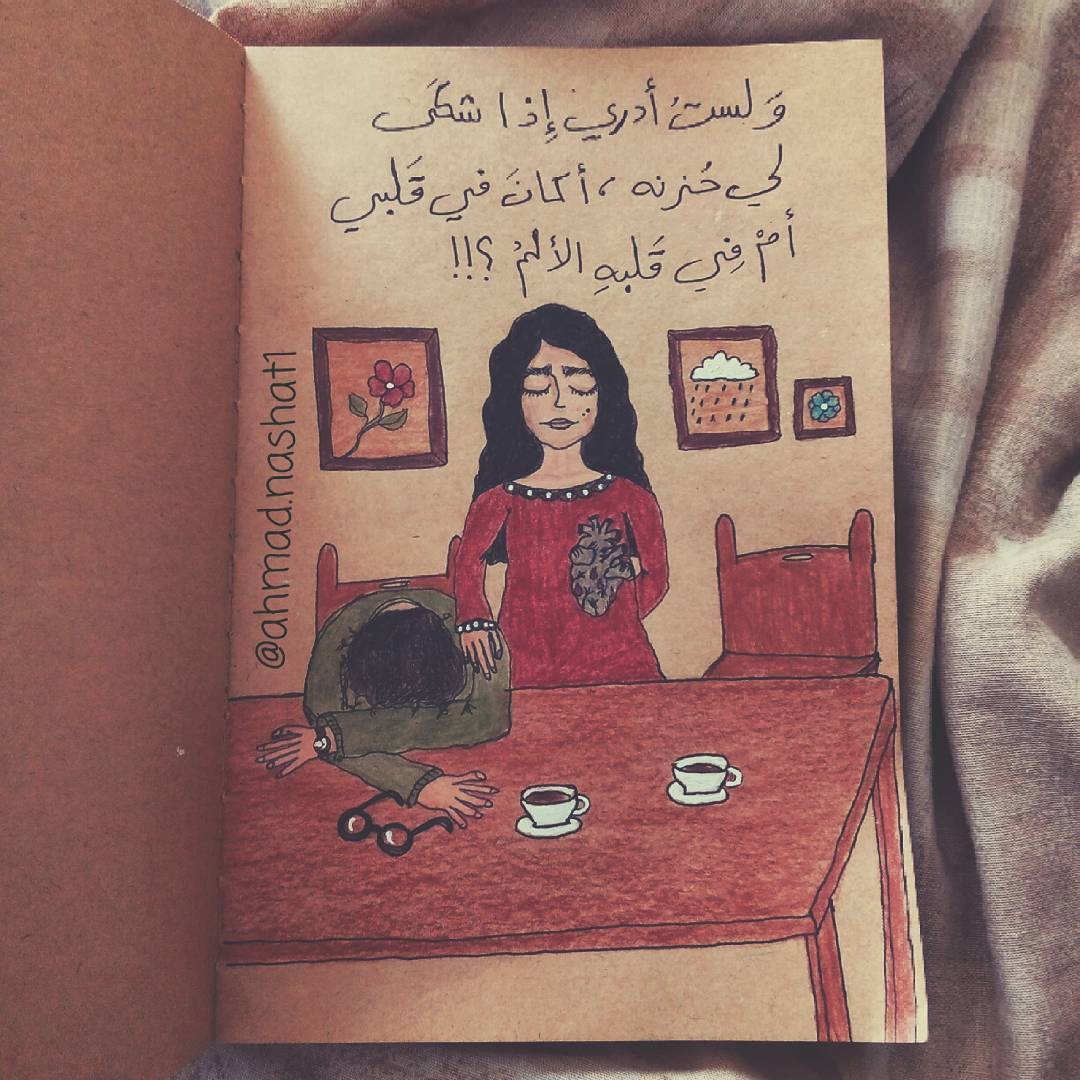 وَلستُ أدري إِذا شكَى
لي حُزنه ، أكانَ في قَلبي
أمْ فِي قَلبهِ الألمُ ؟!!
@ahmad.nashat1